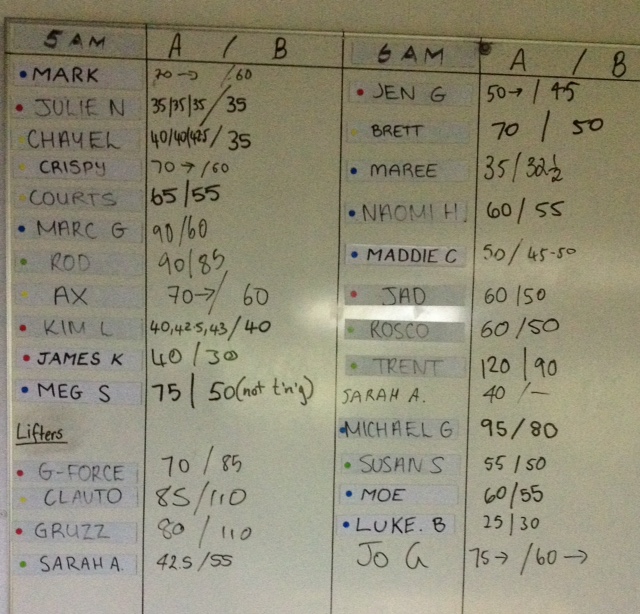 5 AM A / B
MARK 70 → / 60
JULIE N 35/35/35/ 35
CHAYEL 40/40/42.5 / 35
CRISPY 70 → / 60
COURTS 65/55
MARC G 90/60
ROD 90/85
AX 70 → / 60
KIM L 40,42.5,43/40
JAMES K 40/30
MEG S 75/50 (not t'n'g)
Lifters
G-FORCE 70 / 85
CLAUTO 85/110
GRUZZ 80 / 110
SARAH A. 42.5/55
6 AM A / B
JEN G 50 → / 45
BRETT 70 / 50
MAREE 35/32½
NAOMI H. 60/55
MADDIE C 50/45-50
JAD 60/50
ROSCO 60/50
TRENT 120/90
SARAH A. 40 / —
MICHAEL G 95/80
SUSAN S 55/50
MOE 60/55
LUKE. B 25/30
JO G 75 → / 60 →